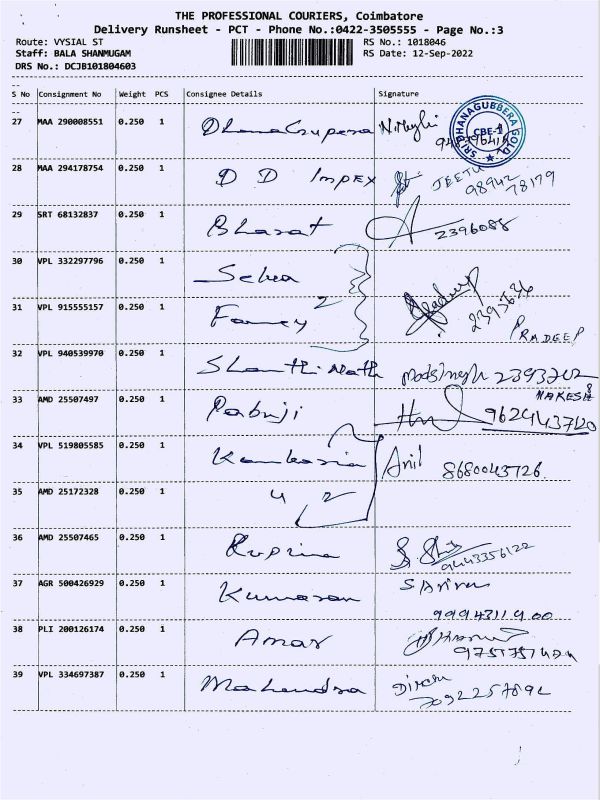 THE PROFESSIONAL COURIERS, Coimbatore
Delivery Runsheet - PCT - Phone No.:0422-3505555 - Page No.:3
Route: VYSIAL ST RS No.: 1018046
Staff: BALA SHANMUGAM RS Date: 12-Sep-2022
DRS No.: DCJB101804603
S No Consignment No Weight PCS Consignee Details Signature
27 MAA 290008551 0.250 1
SRI DHANAGUBBERA GOLD CBE-1
28 MAA 294178754 0.250 1 D D Impex JEETU
98942
78179
29 SRT 68132837 0.250 1 Bharat 2396088
30 VPL 332297796 0.250 1 Selva
31 VPL 915555157 0.250 1 Fancy 2 2393636
PRADEEP
32 VPL 940539970 0.250 1 Shanthi Nath 2393702
33 AMD 25507497 0.250 1 Pabuji MAKESH
9624443720
34 VPL 519805585 0.250 1 Anil 8680043726
35 AMD 25172328 0.250 1 4 2
36 AMD 25507465 0.250 1 9443356122
37 AGR 500426929 0.250 1 Kumaran
9994311900
38 PLI 200126174 0.250 1 Amar
39 VPL 334697387 0.250 1 Mahendra